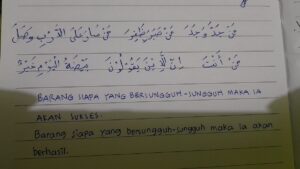 مَنْ جَدَّ وَجَدَ مَنْ صَبَرَ ظَفِرَ مَنْ سَارَ عَلَى الدَّرْبِ وَصَلَ
BARANG SIAPA YANG BERSUNGGUH-SUNGGUH MAKA IA
AKAN SUKSES.
Barang siapa yang bersungguh-sungguh maka ia akan
berhasil.